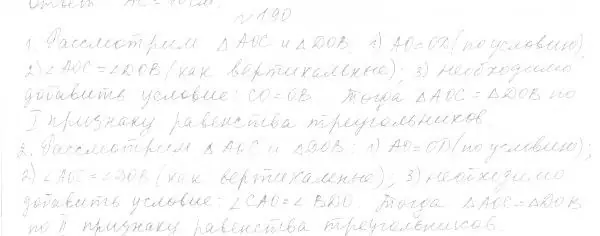 Ответ: AC = 10см.
№190
1. Рассмотрим △AOC и △DOB: 1) AO=OD (по условию);
2) ∠AOC = ∠DOB (как вертикальные); 3) необходимо
добавить условие: CO=OB. Тогда △AOC = △DOB по
I признаку равенства треугольников
2. Рассмотрим △AOC и △DOB: 1) AO=OD (по условию);
2) ∠AOC = ∠DOB (как вертикальные); 3) необходимо
добавить условие: ∠CAO = ∠BDO. Тогда △AOC = △DOB
по II признаку равенства треугольников.